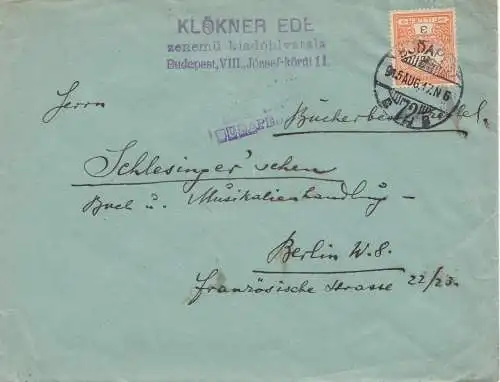 KLÖKNER EDE
zenemű kiadóhivatala
Budapest, VIII., József-körút 11.
BUDAPEST
915 AUG. 17. N 6
72
Herrn
Bücherbestellzettel.
Schlesinger'schen
Buch u. Musikalienhandlung –
Berlin W. 8.
Französische Strasse 22/23.